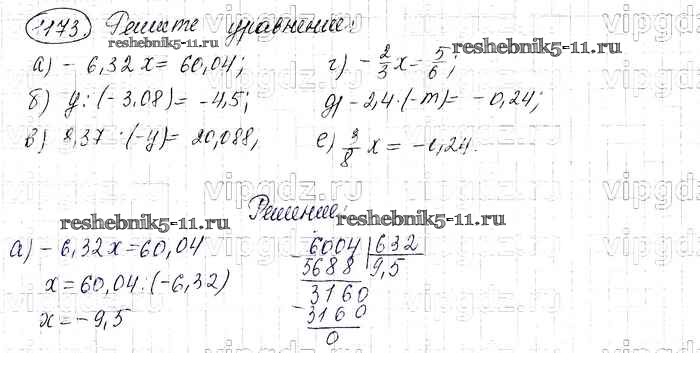 1173. Решите уравнение:
reshebnik5-11.ru
reshebnik5-11.ru
а) - 6,32x = 60,04;
г) - 2/3 x = 5/6;
б) y : (-3,08) = -4,5;
д) - 2,4 · (-m) = -0,24;
в) 8,37 · (-y) = 20,088,
е) 3/8 x = -1,24.
Решение:
reshebnik5-11.ru
reshebnik5-11.ru
а) - 6,32x = 60,04
x = 60,04 : (-6,32)
x = -9,5
- 6004 | 632
5688 | 9,5
- 3160
3160
0
vipgdz.ru